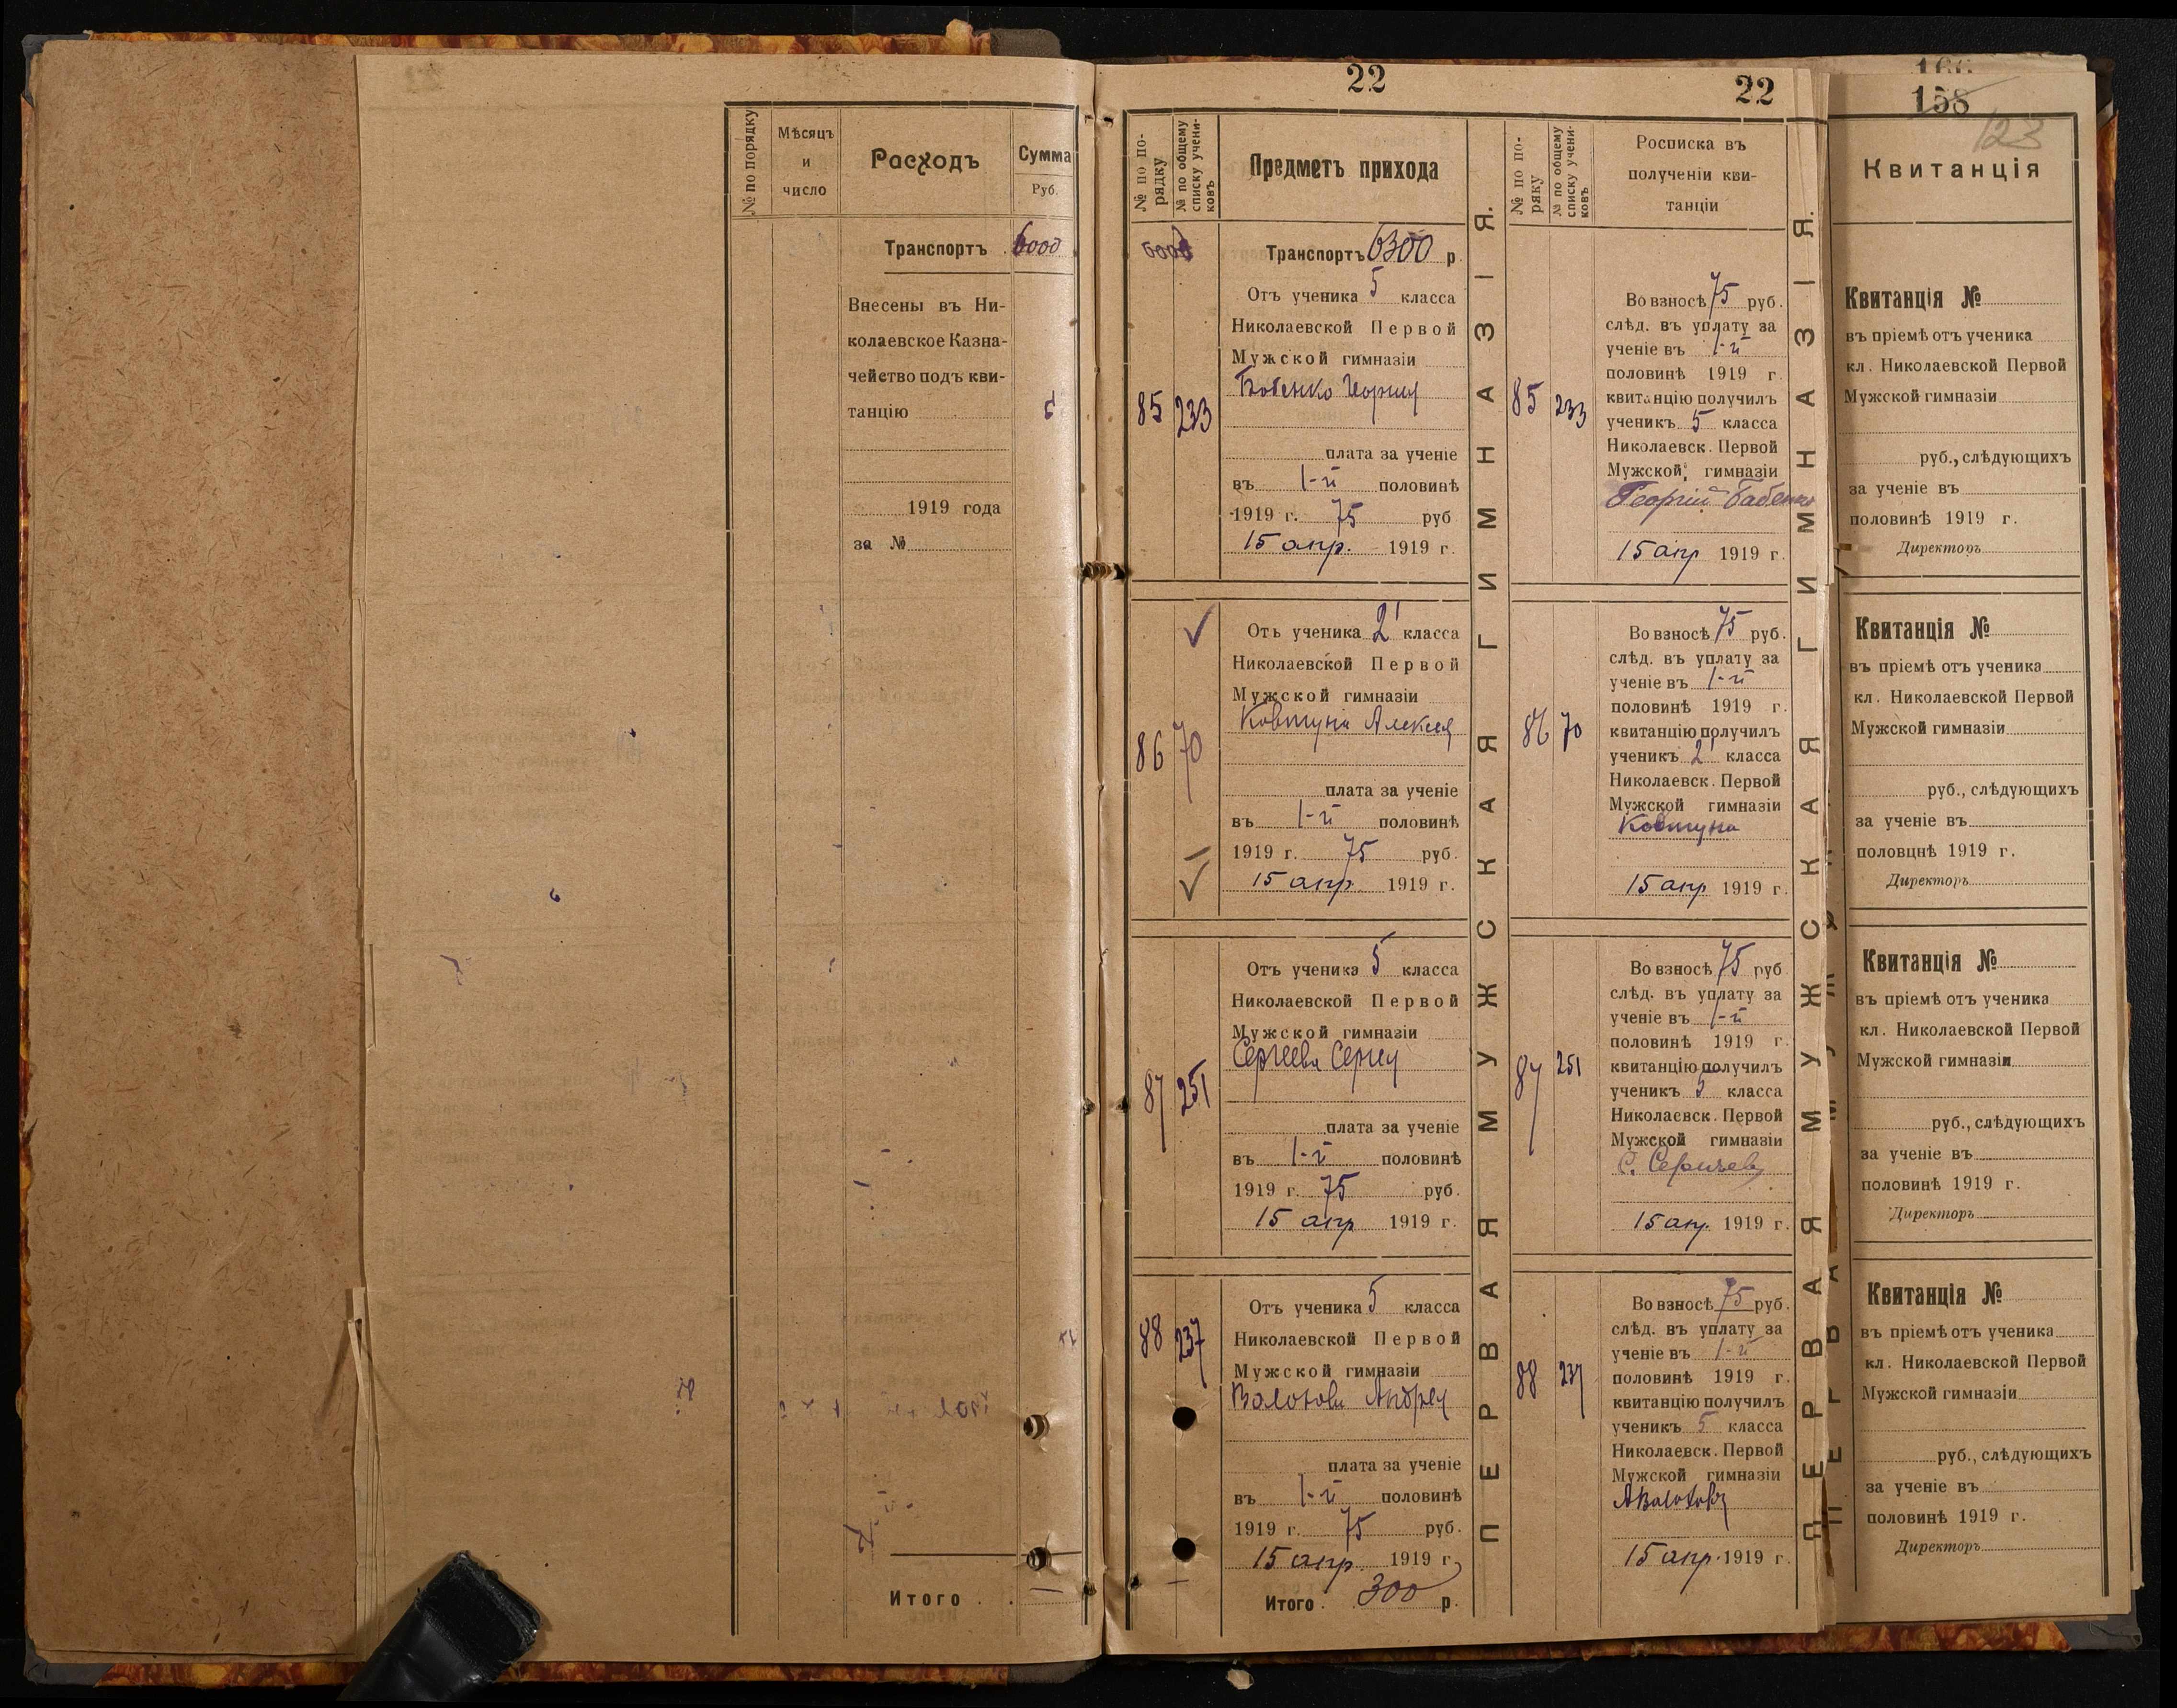 № по порядку
Мѣсяцъ
и
число
Расходъ
Сумма
Руб.
Транспортъ . 6000
Внесены въ Ни-
колаевское Казна-
чейство подъ кви-
танцію
1919 года
за №
Итого . .
22
№ по по-
рядку
№ по общему
списку учени-
ковъ
Предметъ прихода
6000
Транспортъ 6300 р.
85
233
Отъ ученика 5 класса
Николаевской Первой
Мужской гимназіи
Бабенко Георгія
плата за ученіе
въ 1-й половинѣ
1919 г. 75 руб
15 апр. 1919 г.
86
70
Отъ ученика 2¹ класса
Николаевской Первой
Мужской гимназіи
Ковтуна Алексея
плата за ученіе
въ 1-й половинѣ
1919 г. 75 руб.
15 апр. 1919 г.
87
251
Отъ ученика 5 класса
Николаевской Первой
Мужской гимназіи
Сергеева Сергея
плата за ученіе
въ 1-й половинѣ
1919 г. 75 руб.
15 апр 1919 г.
88
237
Отъ ученика 5 класса
Николаевской Первой
Мужской гимназіи
Волохова Андрея
плата за ученіе
въ 1-й половинѣ
1919 г. 75 руб.
15 апр 1919 г.
Итого . 300 р.
ПЕРВАЯ МУЖСКАЯ ГИМНАЗІЯ.
22
№ по по-
ряку
№ по общему
списку учени-
ковъ
Росписка въ
полученіи кви-
танціи
85
233
Во взносѣ 75 руб.
слѣд. въ уплату за
ученіе въ 1-й
половинѣ 1919 г.
квитанцію получилъ
ученикъ 5 класса
Николаевск. Первой
Мужской гимназіи
Георгій Бабенко
15 апр 1919 г.
86
70
Во взносѣ 75 руб.
слѣд. въ уплату за
ученіе въ 1-й
половинѣ 1919 г.
квитанцію получилъ
ученикъ 2¹ класса
Николаевск. Первой
Мужской гимназіи
Ковтуна
15 апр 1919 г.
87
251
Во взносѣ 75 руб
слѣд. въ уплату за
ученіе въ 1-й
половинѣ 1919 г.
квитанцію получилъ
ученикъ 5 класса
Николаевск. Первой
Мужской гимназіи
С. Сергѣевъ
15 апр. 1919 г.
88
237
Во взносѣ 75 руб.
слѣд. въ уплату за
ученіе въ 1-й
половинѣ 1919 г.
квитанцію получилъ
ученикъ 5 класса
Николаевск. Первой
Мужской гимназіи
АВолоховъ
15 апр. 1919 г.
ПЕРВАЯ МУЖСКАЯ ГИМНАЗІЯ.
166
158
123
Квитанція
Квитанція №
въ пріемѣ отъ ученика
кл. Николаевской Первой
Мужской гимназіи
руб., слѣдующихъ
за ученіе въ
половинѣ 1919 г.
Директоръ
Квитанція №
въ пріемѣ отъ ученика
кл. Николаевской Первой
Мужской гимназіи
руб., слѣдующихъ
за ученіе въ
половцнѣ 1919 г.
Директоръ
Квитанція №
въ пріемѣ отъ ученика
кл. Николаевской Первой
Мужской гимназіи
руб., слѣдующихъ
за ученіе въ
половинѣ 1919 г.
Директоръ
Квитанція №
въ пріемѣ отъ ученика
кл. Николаевской Первой
Мужской гимназіи
руб., слѣдующихъ
за ученіе въ
половинѣ 1919 г.
Директоръ